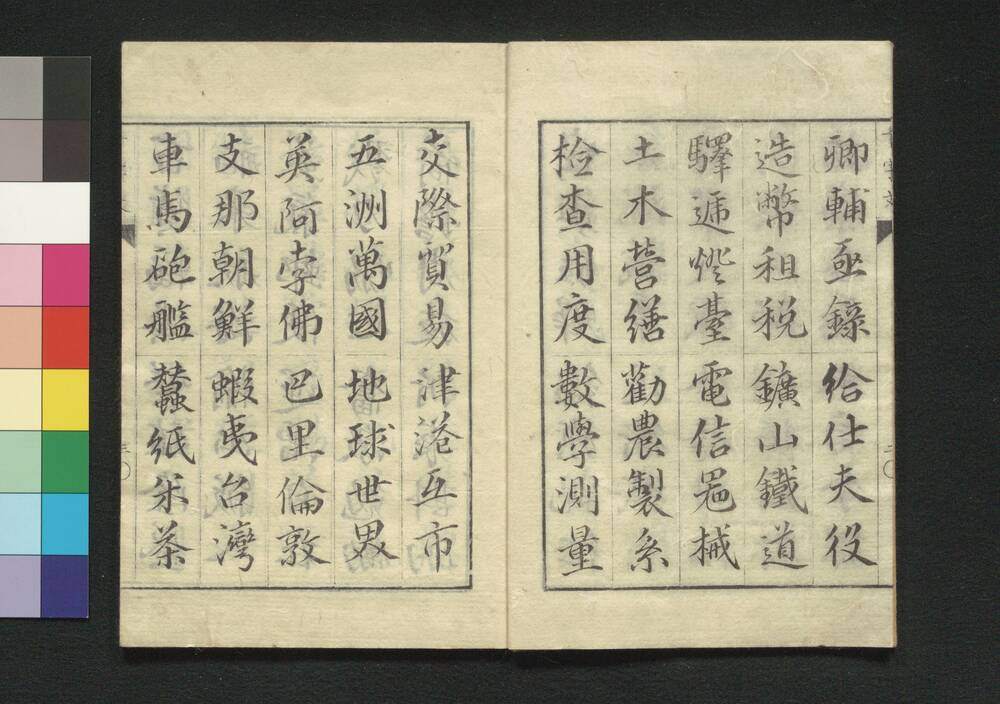 卿輔丞錄給仕夫役
造幣租税鑛山鐵道
驛遞燈臺電信器械
土木營繕勸農製糸
檢查用度數學測量
交際貿易津港互市
五洲萬國地球世界
英阿孛佛巴里倫敦
支那朝鮮蝦夷台灣
車馬砲艦蠶紙米茶